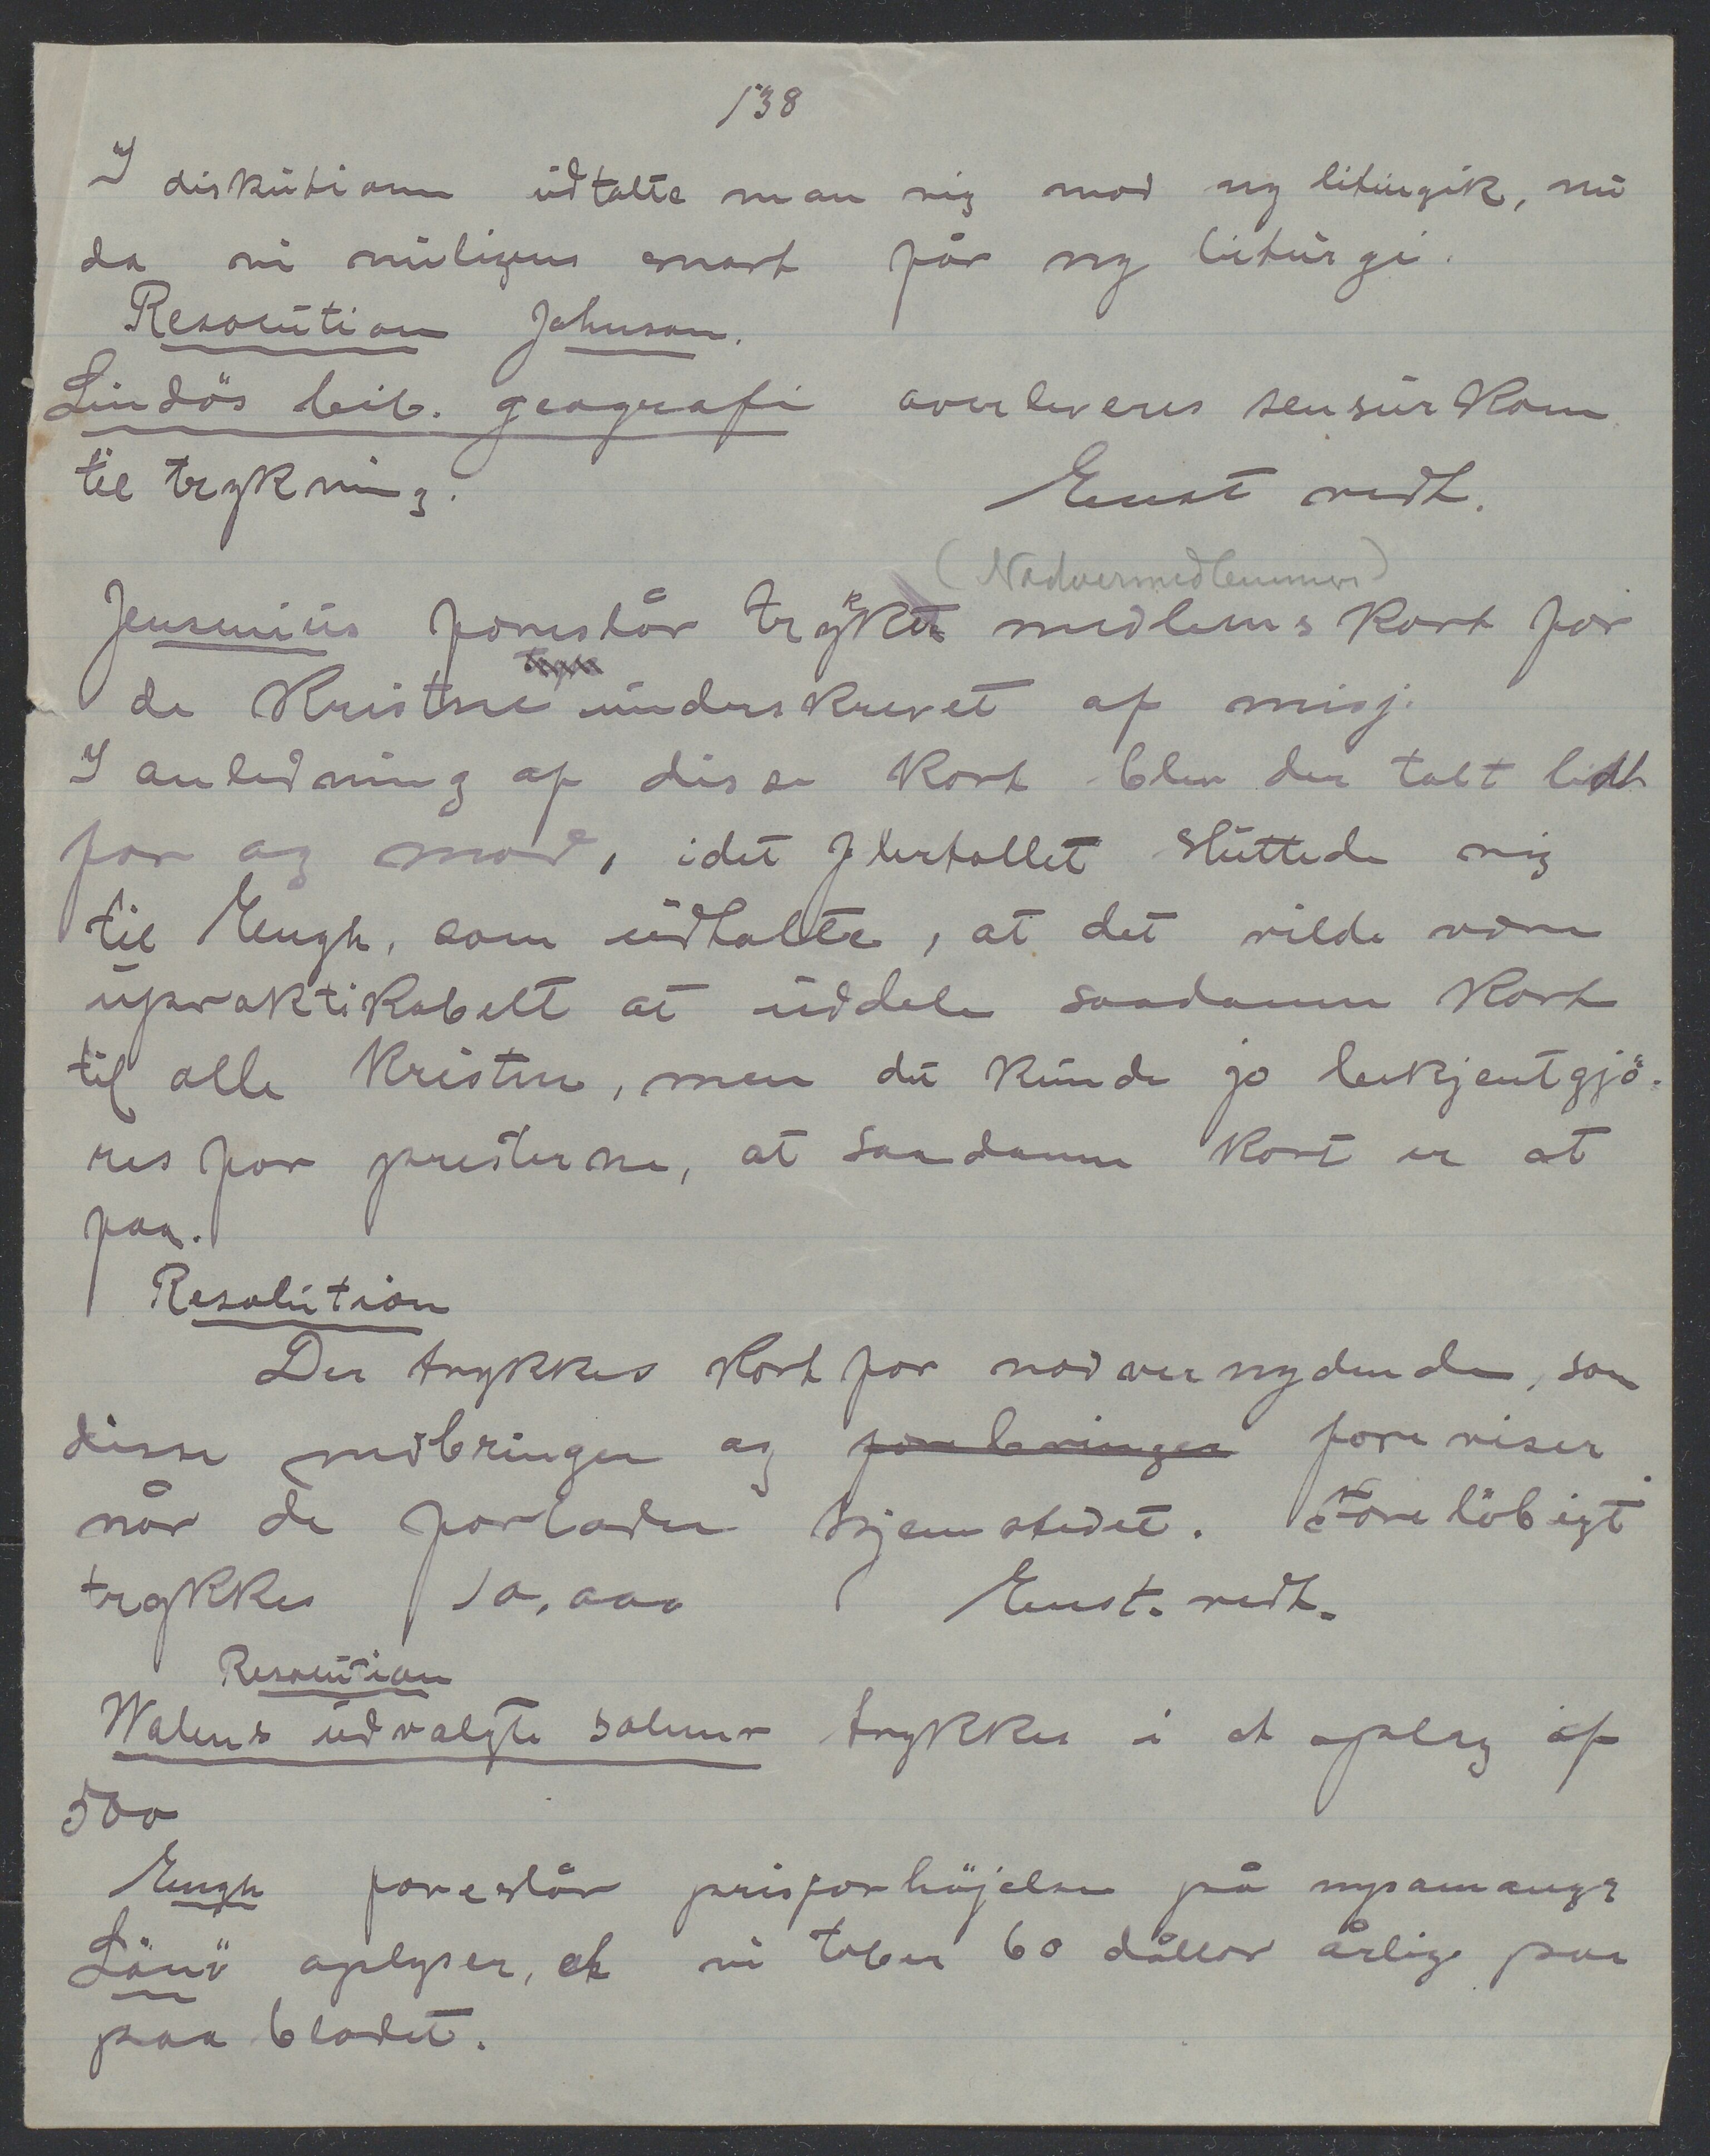 138
I diskutionen udtalte man sig mod ny liturgik, nu
da vi muligens snart får ny liturgi.
Resolution Johnson.
Lindös bib. geografi overleveres sensurkom
til trykning.
Enst vedt.
(Nadvermedlemmer)
Jensenius foreslår trykte medlemskort for
de kristne underskrevet af misj.
I anledning af disse kort blev der talt lidt
for og mod, idet flertallet sluttede sig
til Engh, som udtalte, at det vilde være
upraktikabelt at uddele saadanne kort
til alle kristne, men det kunde jo bekjentgjö-
res for presterne, at saadanne kort er at
faa.
Resolution
Der trykkes kort for nadvernydende, som
disse medbringer og forebringer foreviser
når de forlader hjemstedet. Forelöbigt
trykkes 10,000 Enst. vedt.
Resolution
Walens udvalgte salmer trykkes i et oplag af
500
Engh foreslår prisforhöjelse på mpamangy
Lönö oplyser, at vi taber 60 dållar årlig paa
paa bladet.